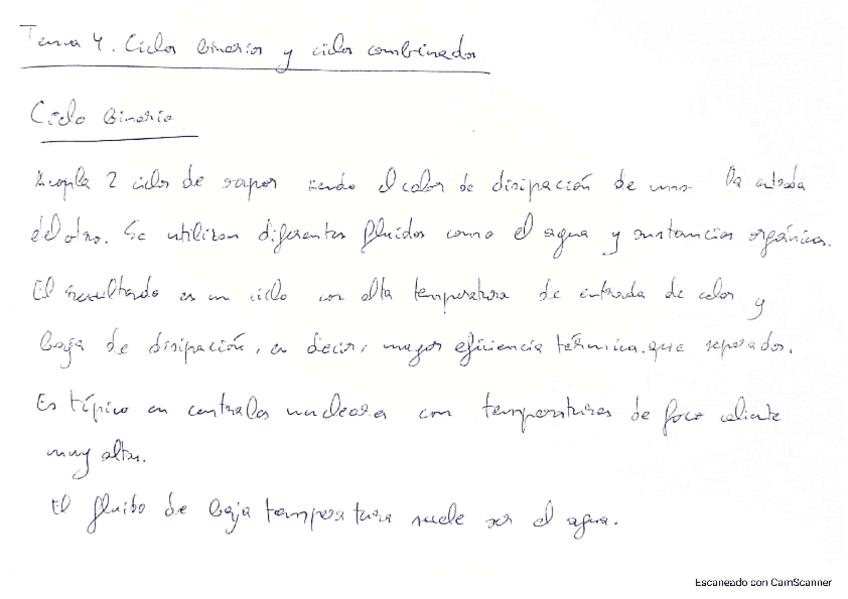 Tema 4. Ciclos binarios y ciclos combinados
Ciclo binario
Acopla 2 ciclos de vapor siendo el calor de disipación de uno la entrada
del otro. Se utilizan diferentes fluidos como el agua y sustancias orgánicas.
El resultado es un ciclo con alta temperatura de entrada de calor y
baja de disipación, es decir, mayor eficiencia térmica que separados.
Es típico en centrales nucleares con temperaturas de foco caliente
muy altas.
El fluido de baja temperatura suele ser el agua.
Escaneado con CamScanner